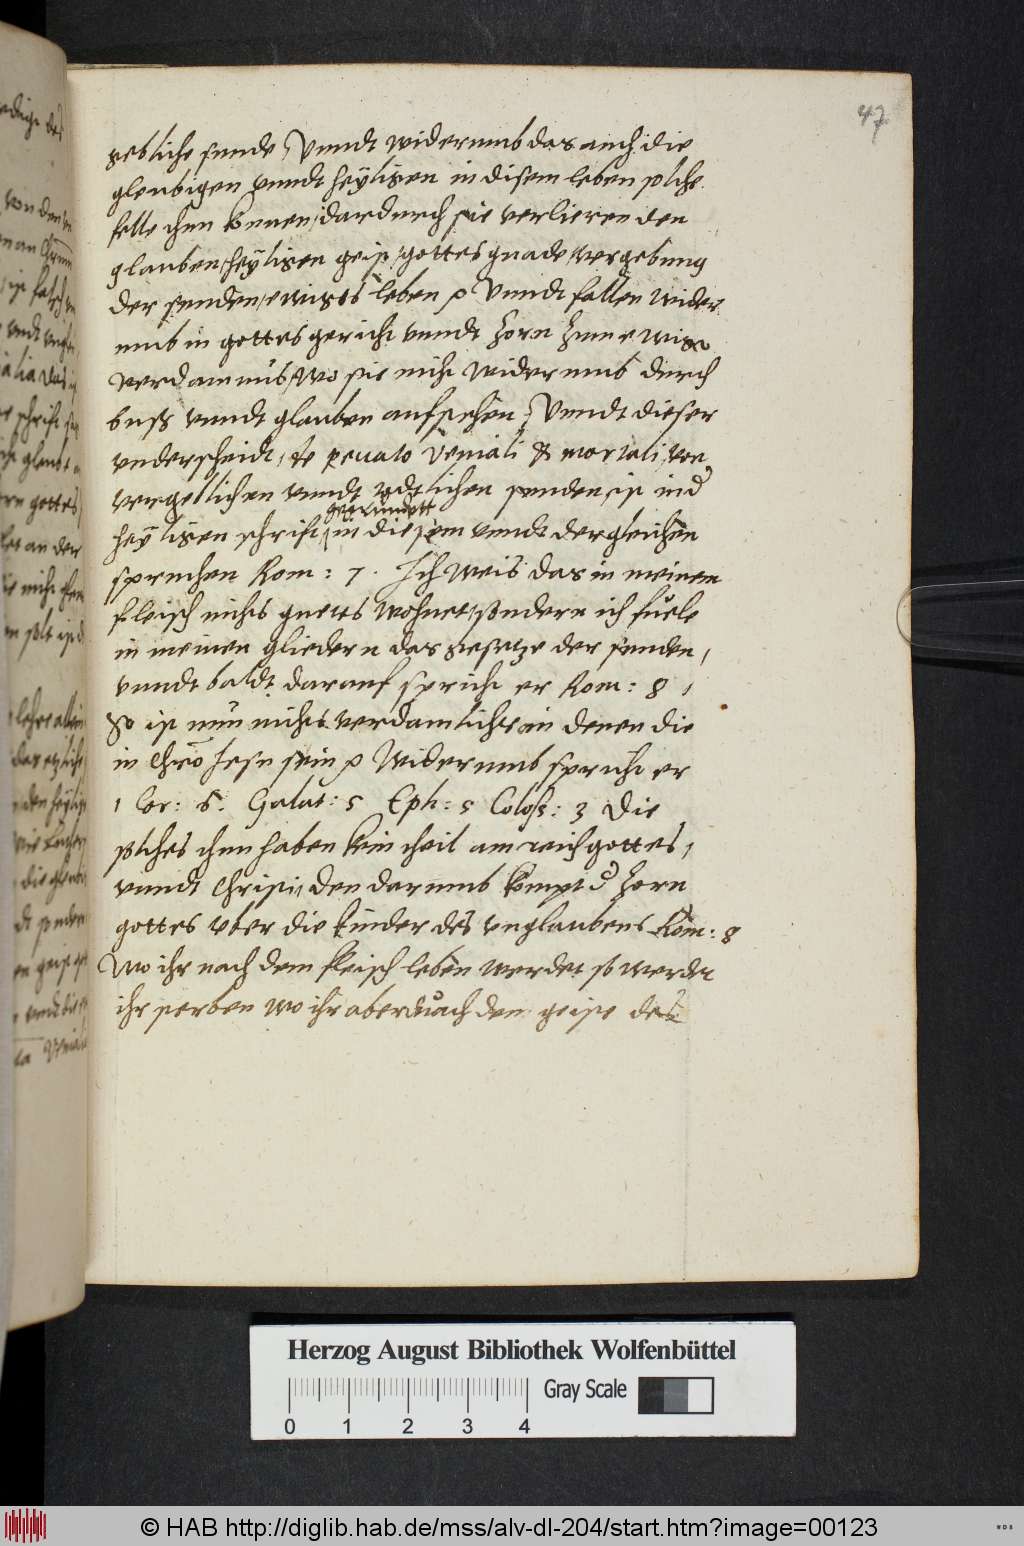 47
gebliche sunde, Vnndt widerumb das auch die
gleubigen vnndt heyligen in disem leben solche
felle thun können, dardurch sie verlieren den
glauben, heyligen geist, gottes gnade, vergebung
der sunden, ewiges leben ꝛc Vnndt fallen wider
umb in gottes gericht vnndt zorn zum ewigen
verdamnus, wo sie nicht widerumb durch
buß vnndt glauben aufstehen, Vnndt dieser
vnderscheidt, de peccato veniali & mortali, von
vergeblichen vnndt tödtlichen sunden, ist in d
gegründett
heyligen schrift, in diesem vnndt dergleichen
spruchen Rom: 7. Ich weis das in meinem
fleisch nichts guetts wohnet, sondern ich fuele
in meinen gliedern das gesetze der sunden,
vnndt baldt darauf spricht er Rom: 8,
So ist nun nichts verdamlichs an denen die
in Chro Jesu sein ꝛc Widerumb spricht er
1 Cor: 6. Galat: 5 Eph: 5 Coloss: 3 Die
solches thun haben kein theil am reich gottes,
vnndt Christi, den darumb kompt d zorn
gottes vber die kinder des vnglaubens Rom: 8
Wo ihr nach dem fleisch leben werdet so werdet
ihr sterben wo ihr aber nach dem geiste des
Herzog August Bibliothek Wolfenbüttel
Gray Scale
0 1 2 3 4
© HAB http://diglib.hab.de/mss/alv-dl-204/start.htm?image=00123